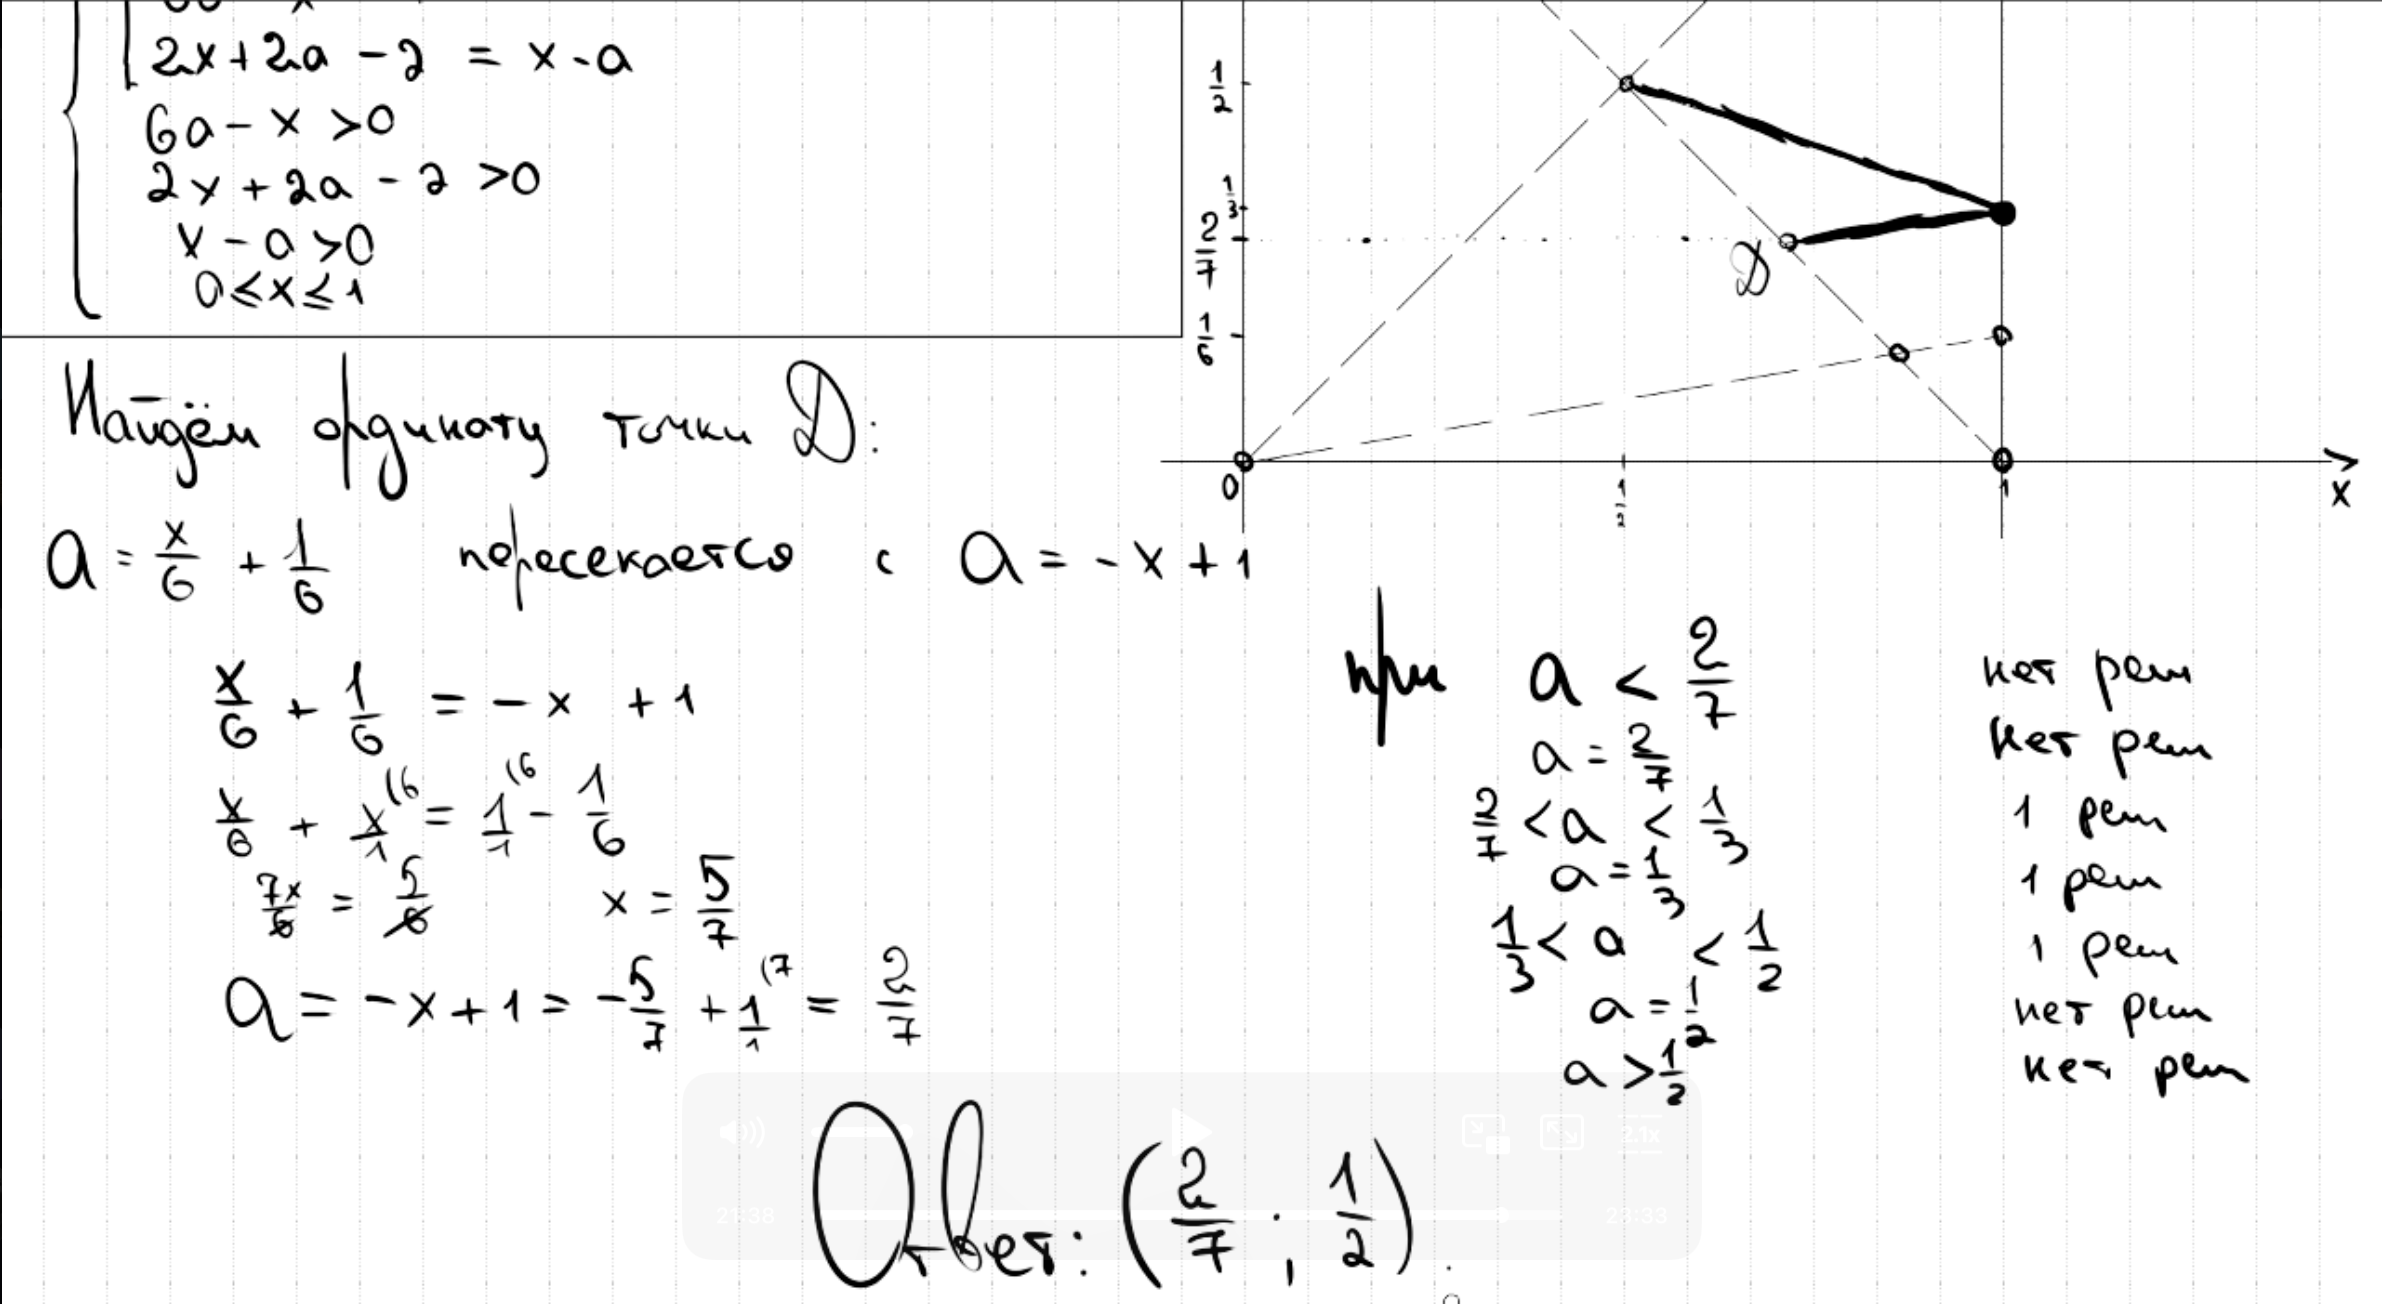 2x+2a-2 = x-a
6a-x>0
2x+2a-2>0
x-a>0
0≤x≤1
1/2
1/3
2/7
1/6
D
0
1/2
1
x
Найдём ординату точки D:
a = x/6 + 1/6 пересекается с a = -x+1
x/6 + 1/6 = -x +1
x/6 + x/1 (6 = 1/1 (6 - 1/6
7x/6 = 5/6 x = 5/7
a = -x+1 = -5/7 + 1/1 (7 = 2/7
при a < 2/7 нет реш
a = 2/7 нет реш
2/7 < a < 1/3 1 реш
a = 1/3 1 реш
1/3 < a < 1/2 1 реш
a = 1/2 нет реш
a > 1/2 нет реш
2.1x
21:38
Ответ: (2/7 ; 1/2).